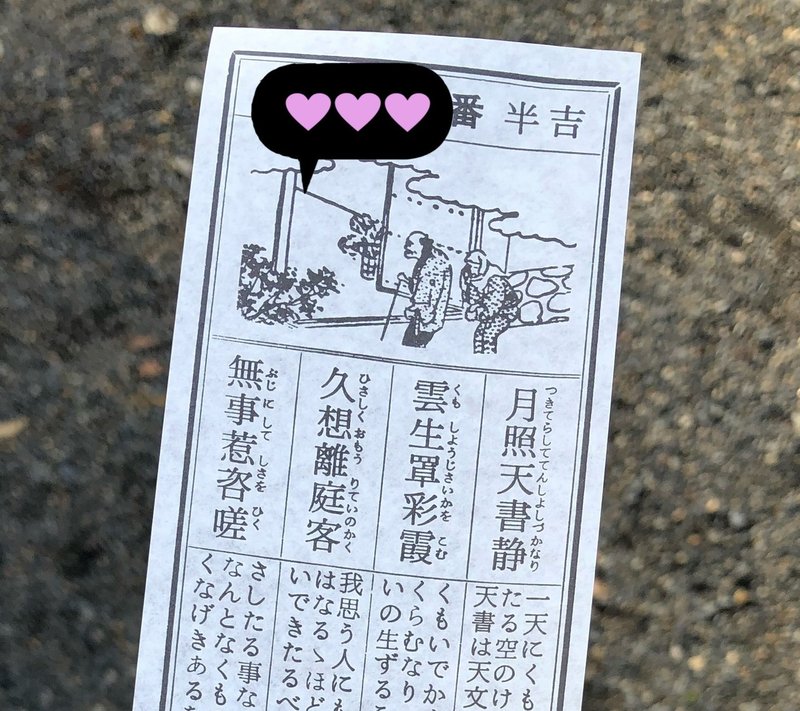 番 半吉
つきてらしててんしよしづかなり
月照天書静
くも しようじさいかを こむ
雲生罩彩霞
ひさしく おもう りていのかく
久想離庭客
ぶじ にして しさを ひく
無事惹咨嗟
一天にくも
たる空のけ
天書は天文
くもいでか
くらむなり
いの生ずる
我思う人にも
はなるゝほど
いできたるべ
さしたる事な
なんとなくも
くなげきある